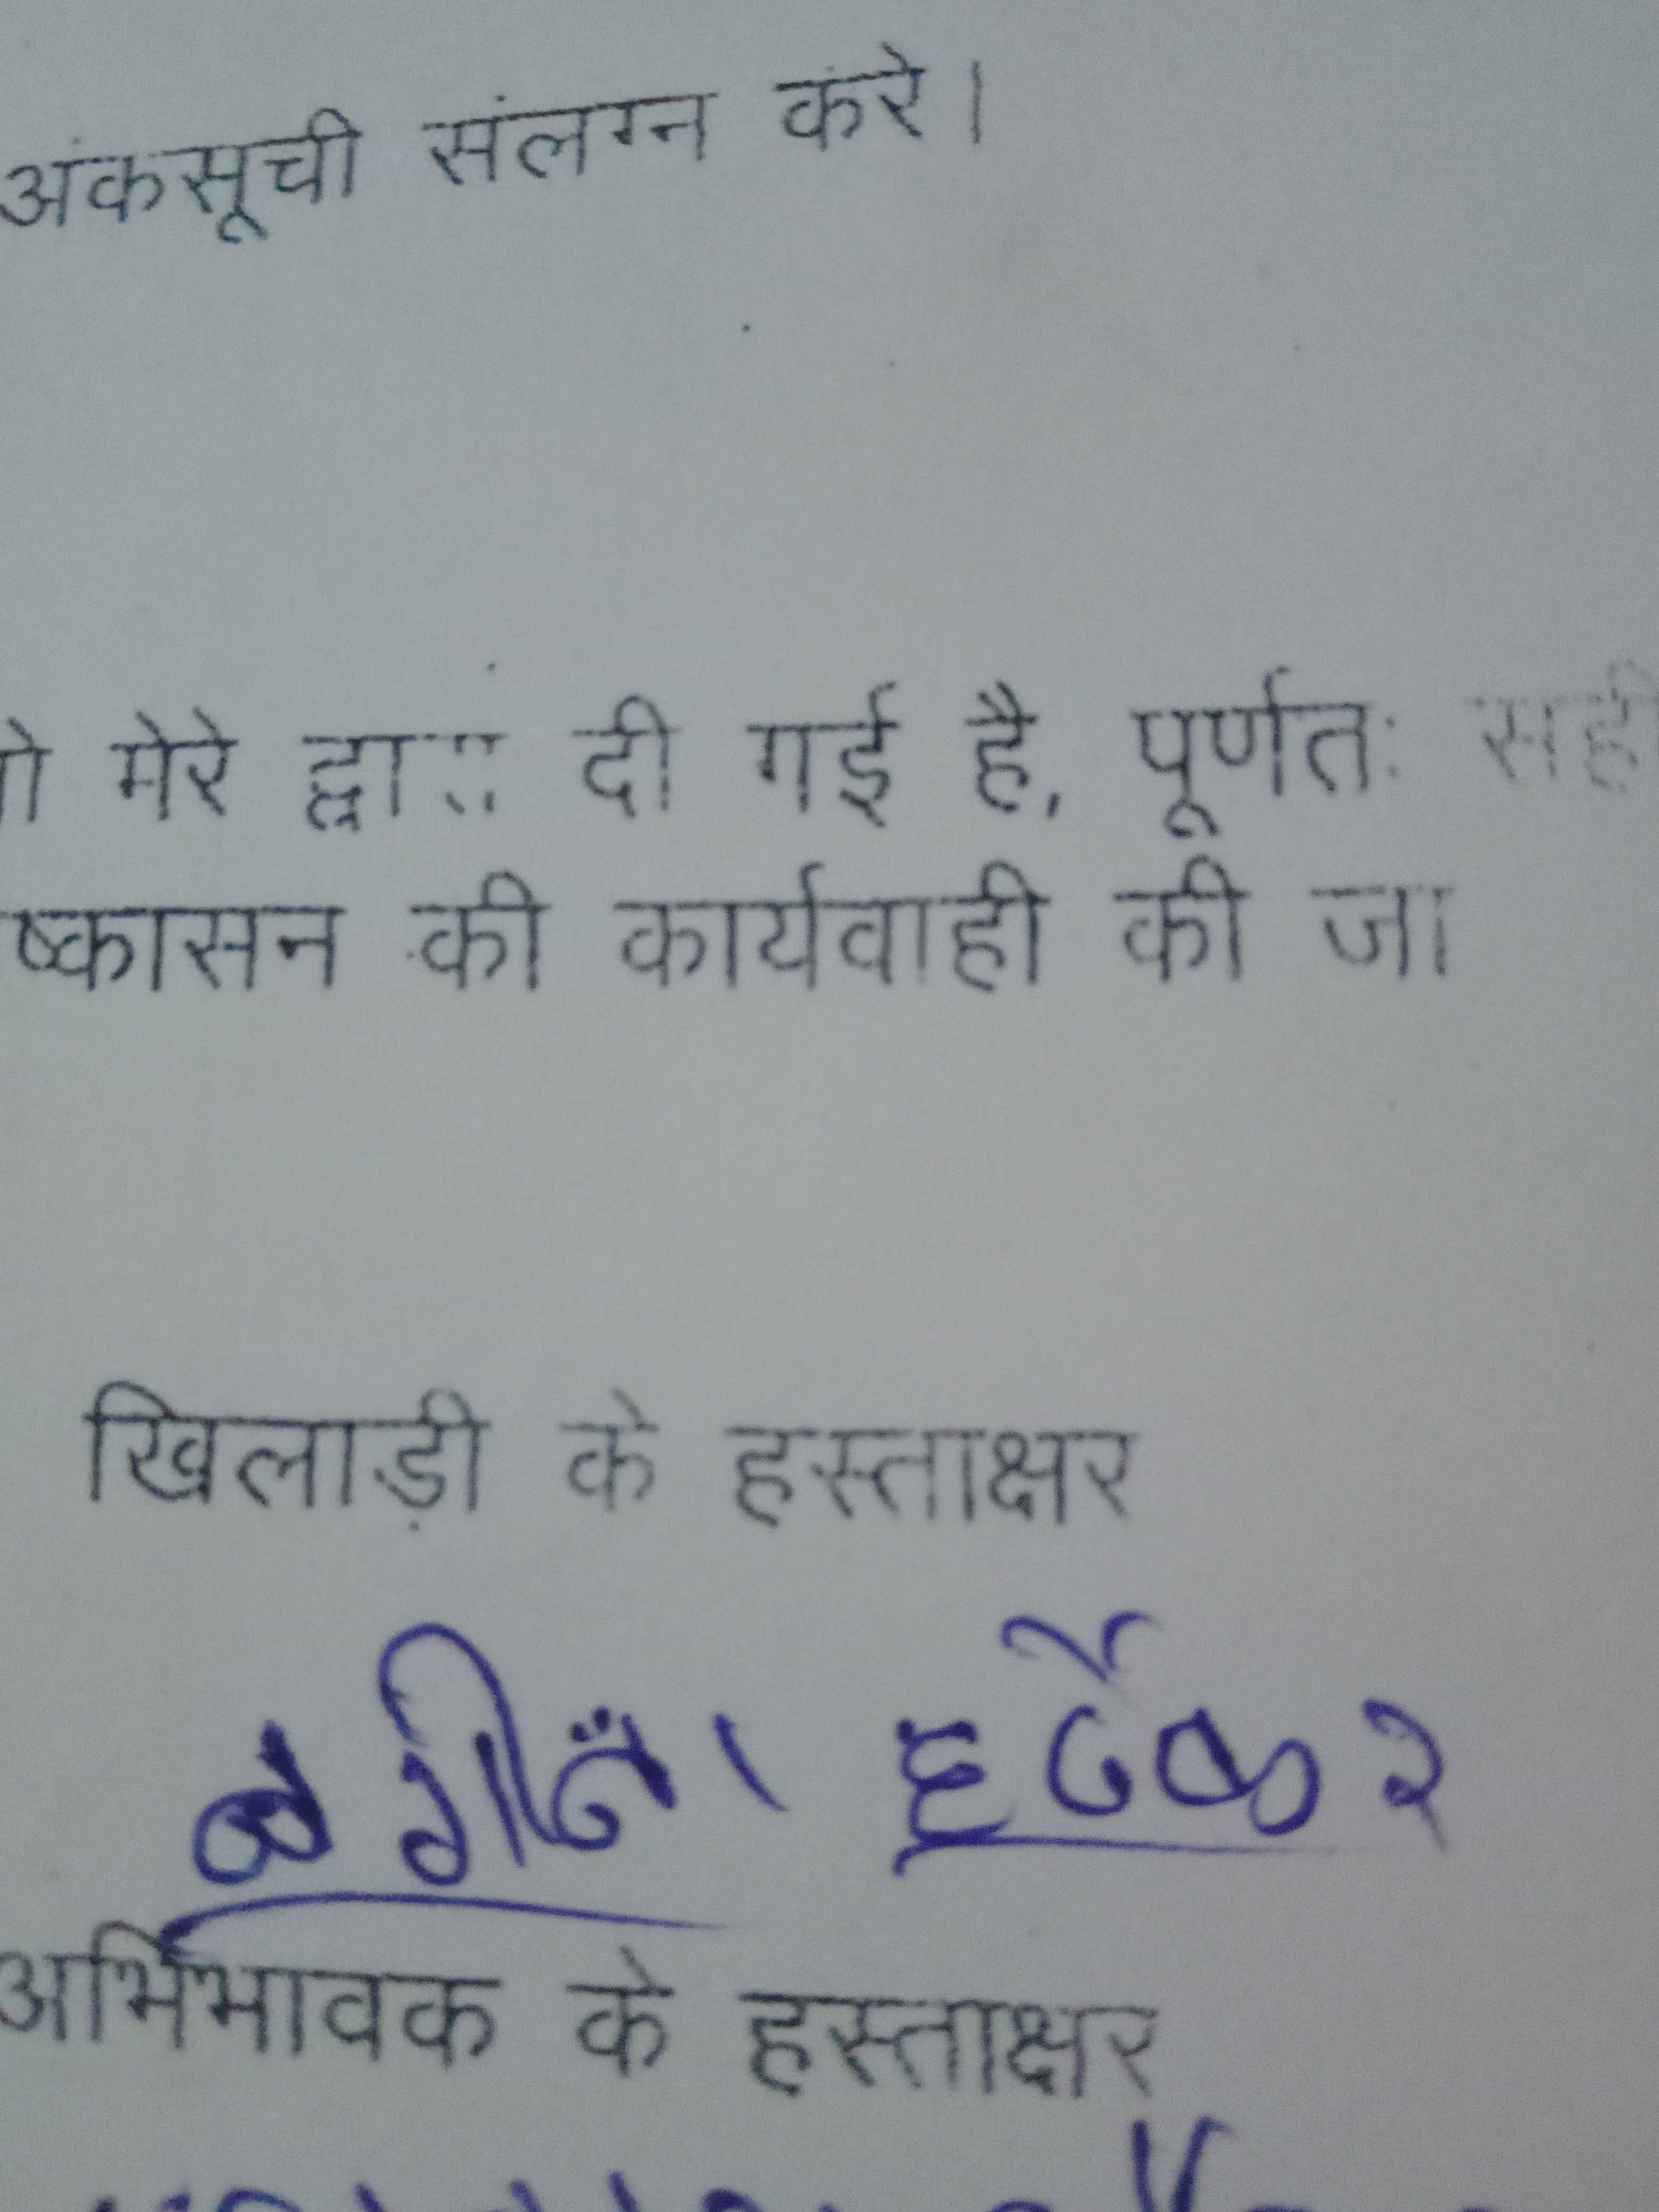 अंकसूची संलग्न करे।
मेरे द्वारा दी गई है, पूर्णतः सही
ष्कासन की कार्यवाही की जा
खिलाड़ी के हस्ताक्षर
अभिभावक के हस्ताक्षर